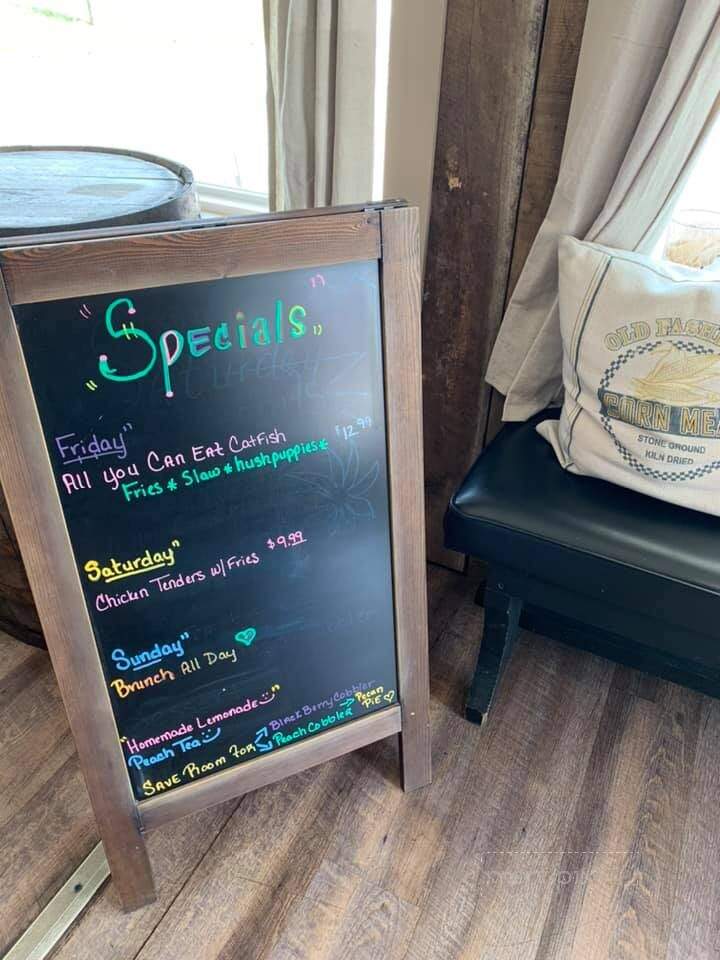 "Specials"
Friday"
All you Can Eat Catfish $12.99
Fries * Slaw * hushpuppies*
Saturday"
Chicken Tenders w/ Fries $9.99
Sunday"
Brunch All Day
"Homemade Lemonade"
Peach Tea
Save Room For
BlackBerry Cobbler
Peach Cobbler
Pecan
Pie
OLD FASH
CORN ME
STONE GROUND
KILN DRIED